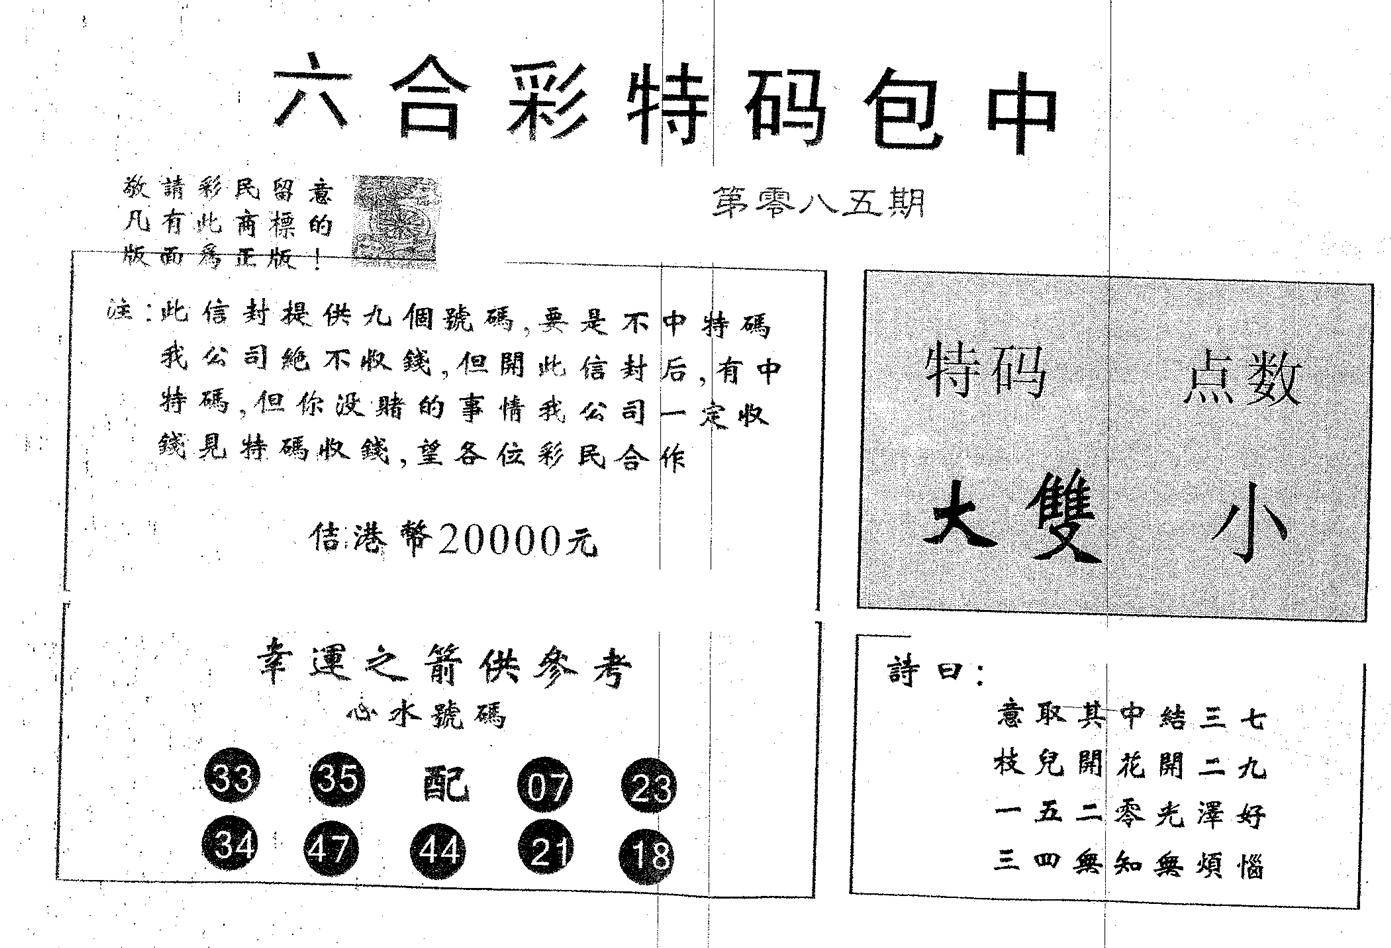 六合彩特码包中
敬請彩民留意
凡有此商標的
版面為正版!
第零八五期
注:此信封提供九個號碼,要是不中特碼
我公司絶不收錢,但開此信封后,有中
特碼,但你没賭的事情我公司一定收
錢見特碼收錢,望各位彩民合作
佶港幣20000元
特码 点数
大雙 小
幸運之箭供參考
心水號碼
33 35 配 07 23
34 47 44 21 18
詩曰:
意取其中結三七
枝兒開花開二九
一五二零光澤好
三四無知無煩惱